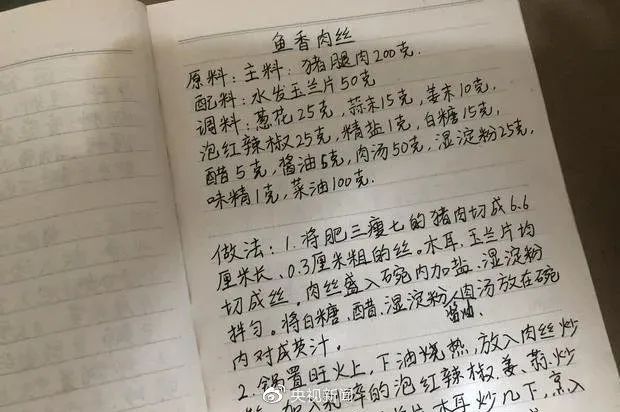 鱼香肉丝
原料:主料:猪腿肉200克.
配料:水发玉兰片50克
调料:葱花25克,蒜末15克,姜末10克,
泡红辣椒25克,精盐1克,白糖15克,
醋5克,酱油5克,肉汤50克,湿淀粉25克,
味精1克,菜油100克.
做法:1.将肥三瘦七的猪肉切成6.6
厘米长、0.3厘米粗的丝。木耳、玉兰片均
切成丝。肉丝盛入碗内加盐、湿淀粉
拌匀。将白糖、醋、湿淀粉、肉汤放在碗
酱油、
内对成芡汁.
2.锅置旺火上,下油烧热,放入肉丝炒
加入 碎的泡红辣椒、姜、蒜炒
片、木耳炒几下,烹入
央视新闻